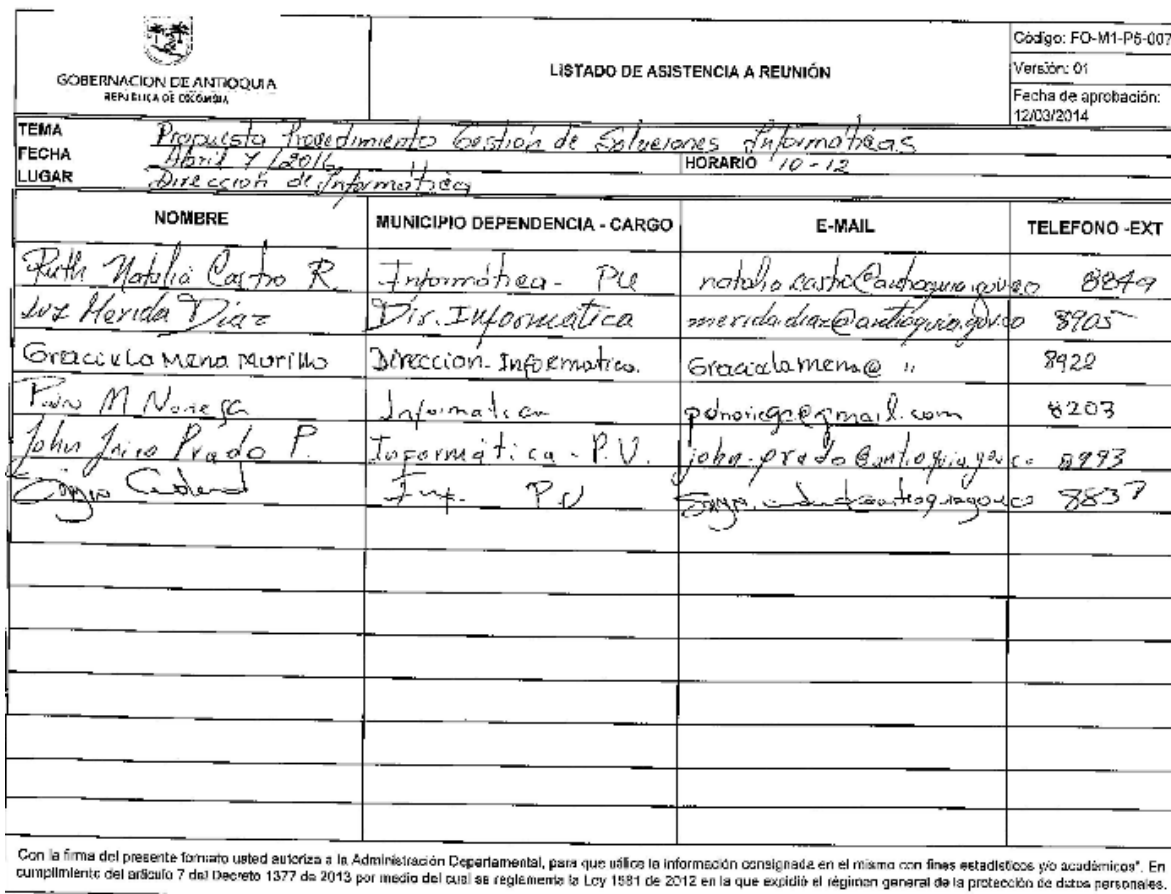 GOBERNACION DE ANTIOQUIA
REPÚBLICA DE COLOMBIA
LISTADO DE ASISTENCIA A REUNIÓN
Código: FO-M1-P5-007
Versión: 01
Fecha de aprobación:
12/03/2014
TEMA Propuesta Procedimiento Gestión de Soluciones Informáticas
FECHA Abril 7/2016 HORARIO 10-12
LUGAR Dirección de Informática
NOMBRE MUNICIPIO DEPENDENCIA - CARGO E-MAIL TELEFONO -EXT
Ruth Natalia Castro R. Informática - PU natalia.castro@antioquia.gov.co 8849
Luz Merida Diaz Dir. Informatica merida.diaz@antioquia.gov.co 8905
Graciela Mena Murillo Direccion-Informatica. Gracielamena@ " 8922
M Noriega Informatica pdnoriega@gmail.com 8203
John Prado P. Informática - P.U. john.prado@antioquia.gov.co 8993
Sergio Inf. PU 8837
Con la firma del presente formato usted autoriza a la Administración Departamental, para que utilice la información consignada en el mismo con fines estadísticos y/o académicos". En
cumplimiento del artículo 7 del Decreto 1377 de 2013 por medio del cual se reglamenta la Ley 1581 de 2012 en la que expidió el régimen general de la protección de datos personales.